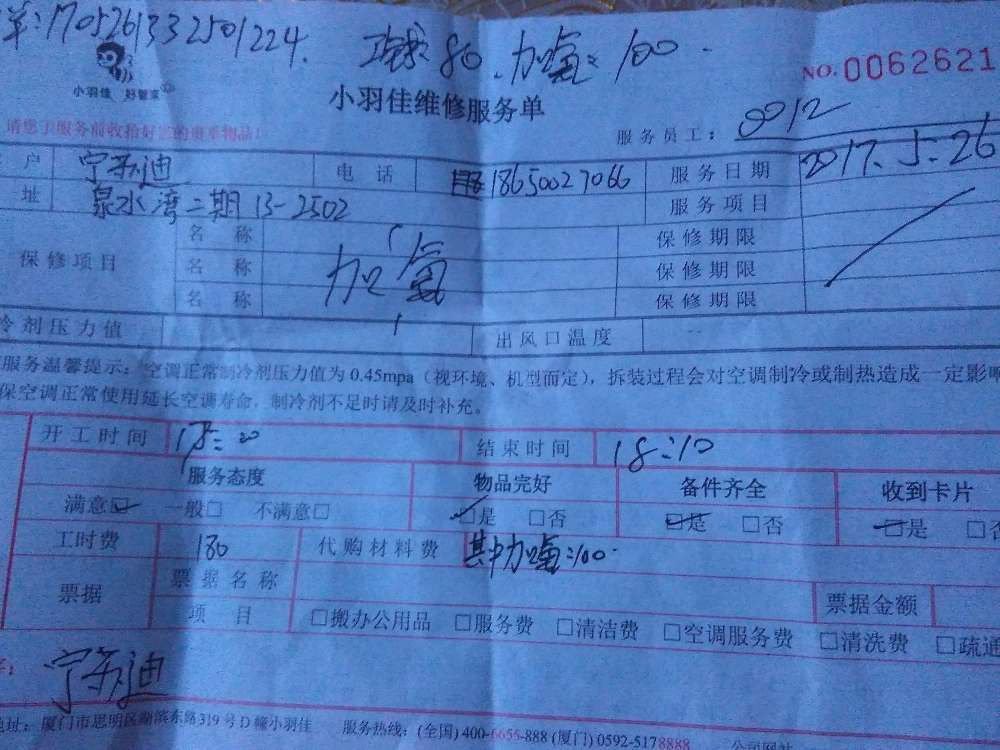 单:1705261332501224. 80、加氟:100.
小羽佳 好管家
NO.0062621
小羽佳维修服务单
请您于服务前收拾好您的贵重物品!
服务员工: 0012
户 电话 18650027066 服务日期 2017.5.26
址 泉水湾二期13-2502 服务项目
保修项目 名称 加氟 保修期限
名称 保修期限
名称 保修期限
冷剂压力值 出风口温度
服务温馨提示:空调正常制冷剂压力值为0.45mpa(视环境、机型而定),拆装过程会对空调制冷或制热造成一定影响
保空调正常使用延长空调寿命,制冷剂不足时请及时补充。
开工时间 结束时间 18:10
服务态度 物品完好 备件齐全 收到卡片
满意☑ 一般□ 不满意□ ☑是 □否 ☑是 □否 ☑是 □否
工时费 180 代购材料费 其中加氟:100.
票据 票据名称 票据金额
项目 □搬办公用品 □服务费 □清洁费 □空调服务费 □清洗费 □疏通
地址:厦门市思明区湖滨东路319号D幢小羽佳 服务热线:(全国)400-6655-888(厦门)0592-5178888 公司网站